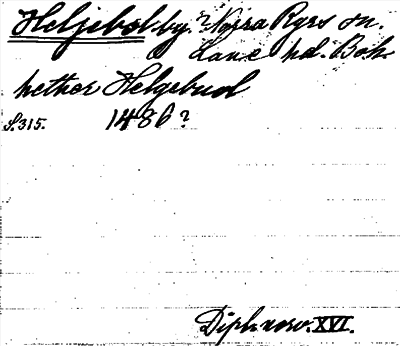 Heljebol by. ? Norra Ryrs sn.
Lane hd. Boh.
nether Helgebud
S. 315. 1486?
Dipl. norv. XVI.